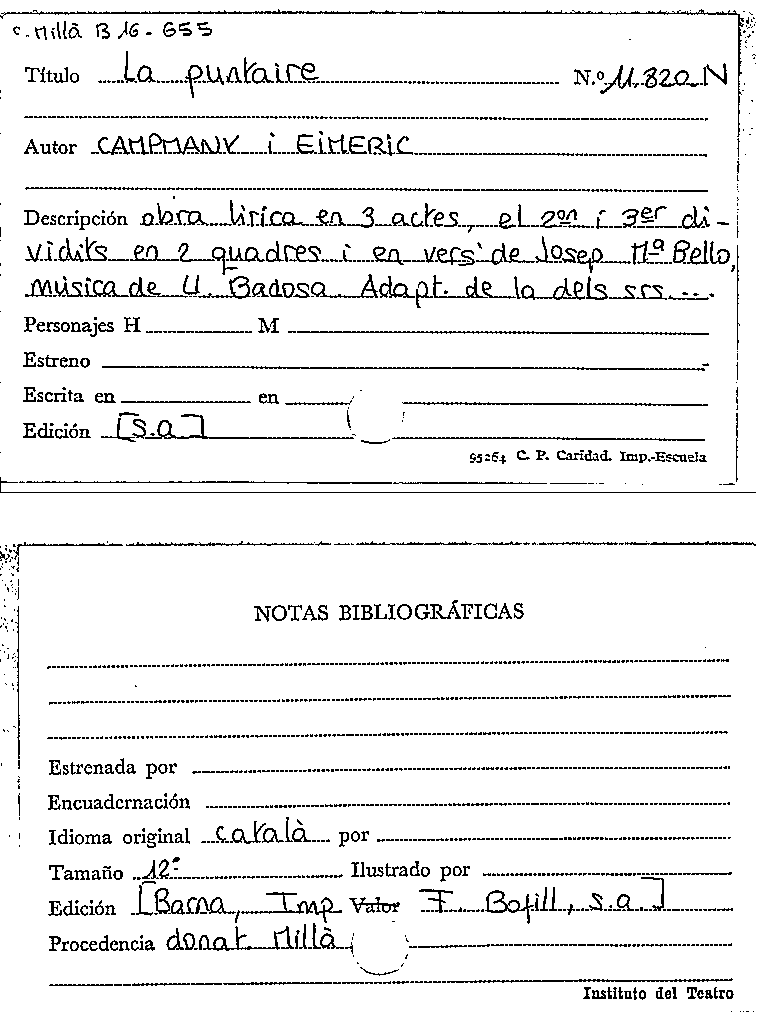 C. Millà B 16 - 655
Título La puntaire N.º 11.820 N
Autor CAMPMANY i EIMERIC
Descripción obra lírica en 3 actes, el 2on i 3er di-
vidits en 2 quadres i en vers de Josep Mª Bello,
música de U. Badosa. Adapt. de la dels srs....
Personajes H M
Estreno
Escrita en en
Edición [S.a]
95264 C. P. Caridad. Imp.-Escuela
NOTAS BIBLIOGRÁFICAS
Estrenada por
Encuadernación
Idioma original català por
Tamaño 12º Ilustrado por
Edición [Barna, Imp Valor F. Bofill, s.a.]
Procedencia donat Millà
Instituto del Teatro